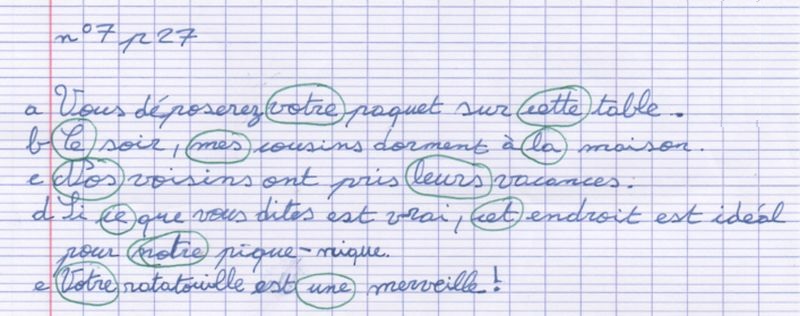 n°7 p27
a Vous déposerez votre paquet sur cette table.
b Ce soir, mes cousins dorment à la maison.
c Nos voisins ont pris leurs vacances.
d Si ce que vous dites est vrai, cet endroit est idéal
pour notre pique-nique.
e Votre ratatouille est une merveille!